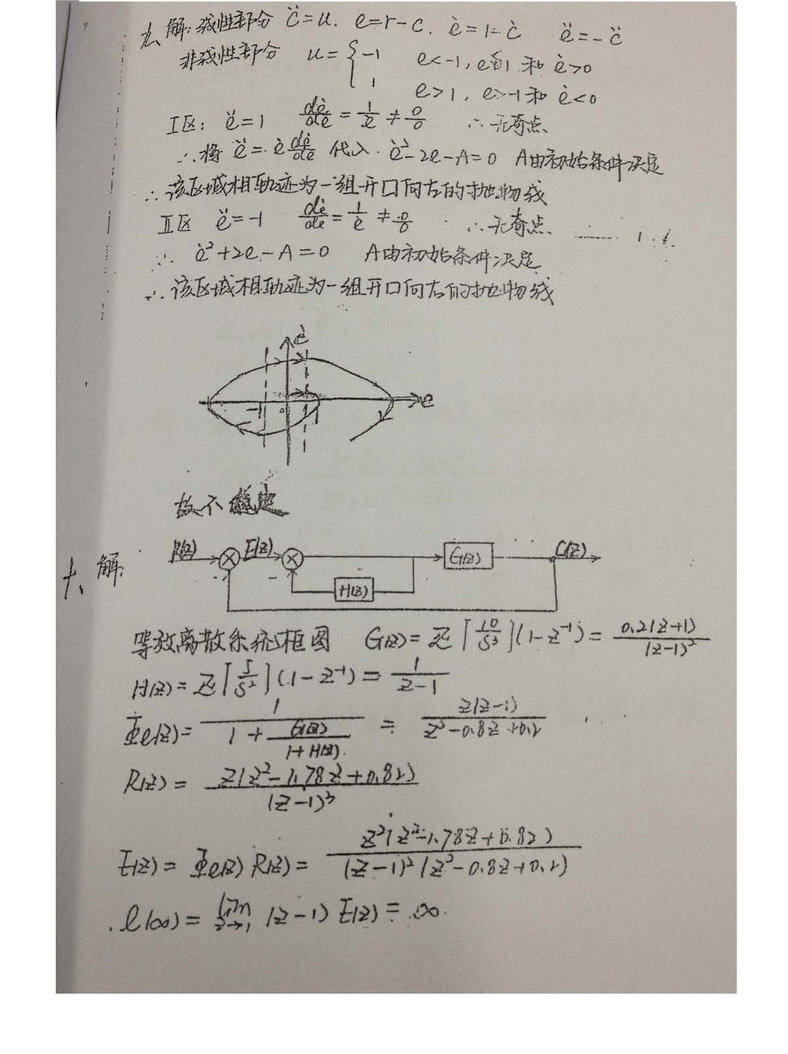 解: 线性部分 c̈=u. e=r-c. ė=1-ċ ë=-c̈
非线性部分 u={ -1 e<-1, e<1 和 ė>0
1 e>1, e>-1 和 ė<0
I区: ë=1 dė/de = 1/ė ≠ 0/0 ∴无奇点
∴将 ë=ė dė/de 代入. ė²-2e-A=0 A由初始条件决定
∴该区域相轨迹为一组开口向右的抛物线
II区 ë=-1 dė/de = 1/ė ≠ 0/0 ∴无奇点.
∵ ė²+2e-A=0 A由初始条件决定
∴该区域相轨迹为一组开口向左的抛物线
ė
-1 0 1 e
故不稳定
十、解:
R(z) E(z) G(z) C(z)
- - H(z)
等效离散系统框图 G(z)=Z[10/S³](1-z⁻¹)=0.2(z+1)/(z-1)²
H(z)=Z[5/S²](1-z⁻¹)=1/(z-1)
Φe(z)=1/(1+G(z)/(1+H(z)))=z(z-1)/(z²-0.8z+0.2)
R(z)=z(z²-1.78z+0.82)/(z-1)³
E(z)=Φe(z)R(z)=z²(z²-1.78z+0.82)/((z-1)²(z²-0.8z+0.2))
e(∞)=lim z→1 (z-1)E(z)=∞.